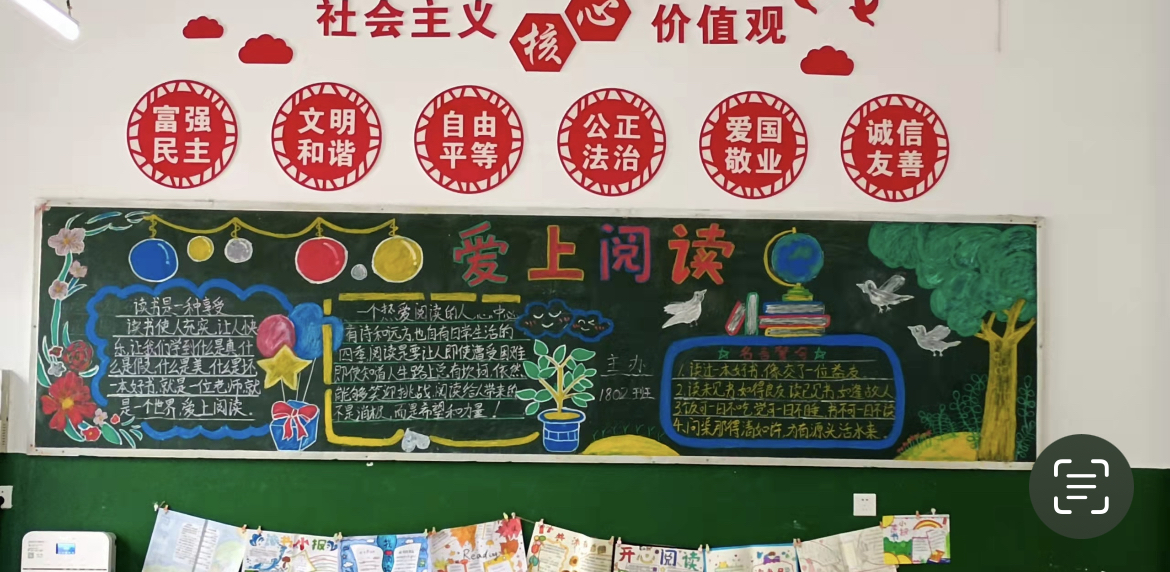 社会主义
核心
价值观
富强
民主
文明
和谐
自由
平等
公正
法治
爱国
敬业
诚信
友善
爱上阅读
读书是一种享受
读书使人充实,让人快
乐,让我们学到什么是真什
么是假,什么是美,什么是坏
一本好书,就是一位老师,就
是一个世界,爱上阅读.
一个热爱阅读的人,心中
有诗和远方,也自有日常生活的
四季,阅读只要让人即使遭受困难
即使知道人生路上总有坎坷,依然
能够笑迎挑战,阅读给人带来的
不是消极,而是希望和力量!
主办
1802班
名言警句
1.读过一本好书,像交了一位益友.
2.读未见书如得良友读已见书如逢故人
3.饭可一日不吃,觉可一日不睡,书不可一日不读
4.问渠那得清如许,为有源头活水来.
小报
Reading
开心阅读